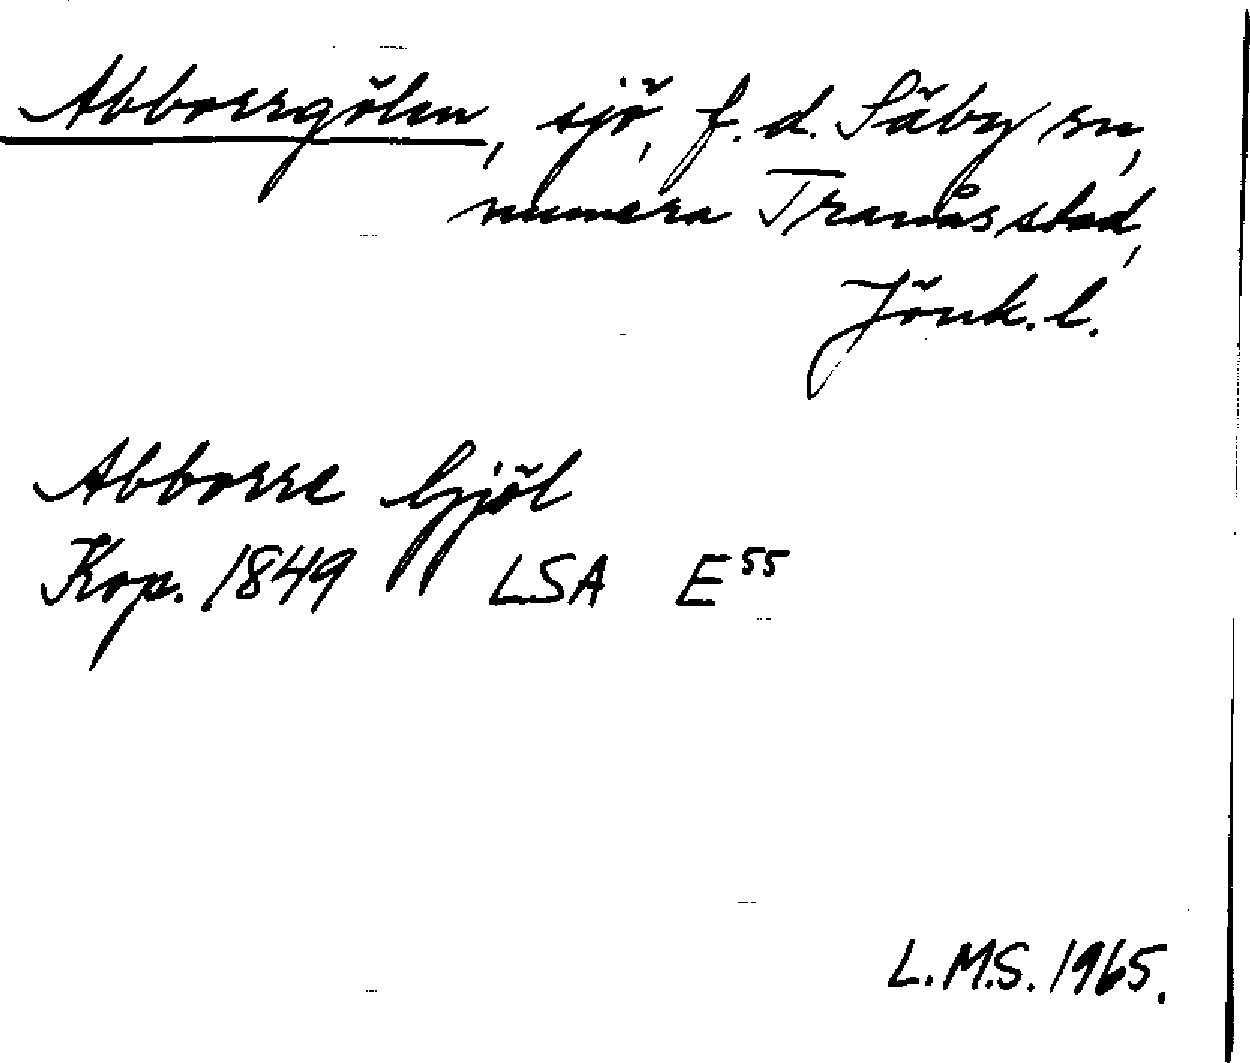 Abborrgölen, sjö, f. d. Säby sn,
numera Tranås stad,
Jönk. l.
Abborre Gjöl
Kop. 1849 LSA E⁵⁵
L.M.S. 1965.